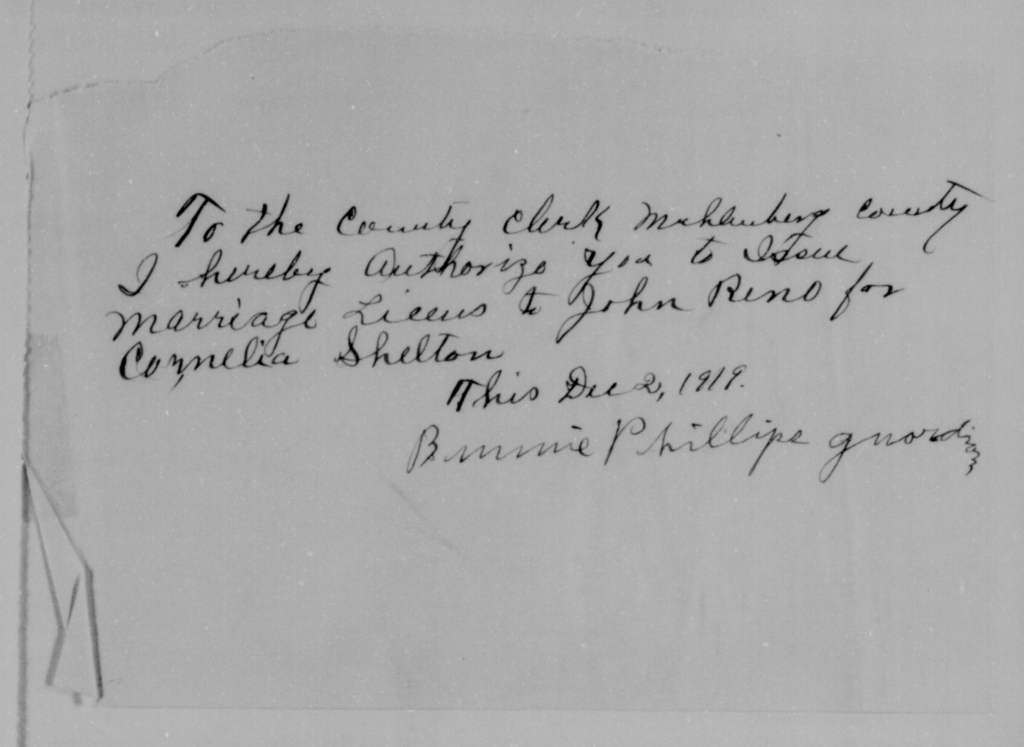 To the County Clerk Muhlenberg County
I hereby Authorize You to Issue
Marriage Licens to John Reno for
Cornelia Shelton
This Dec 2, 1919.
Phillips guardian